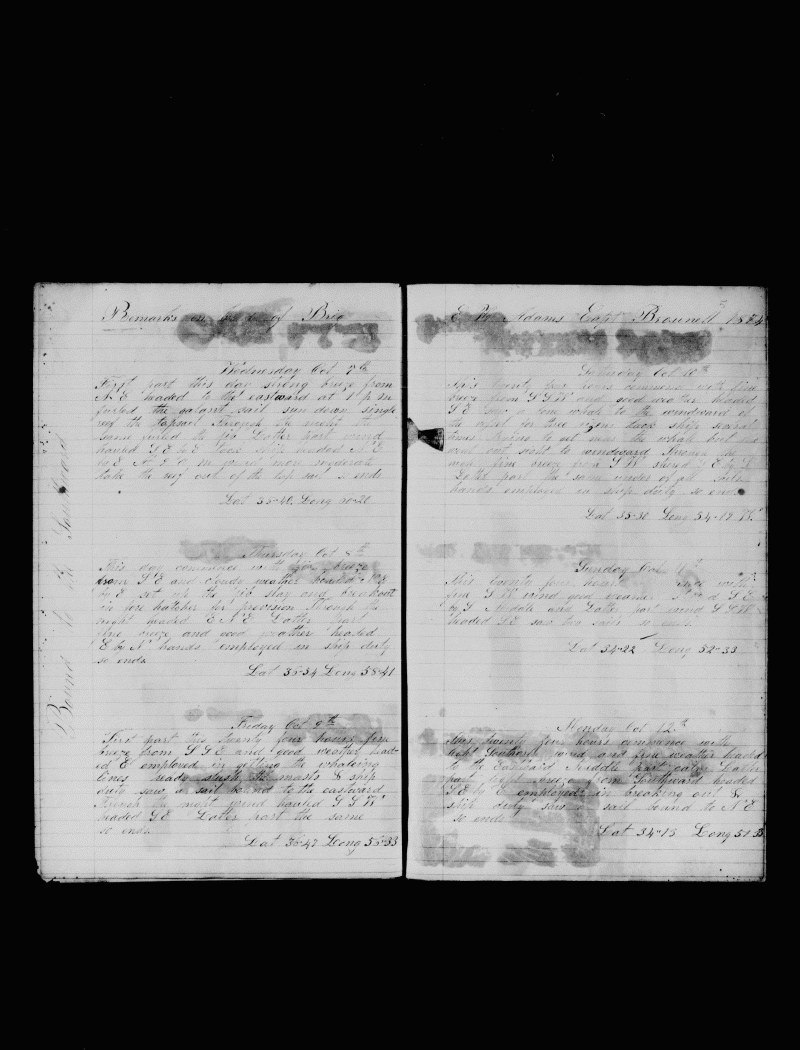 Remarks on board of Brig
Wednesday Oct 7th
First part this day strong breeze from
N E headed to the eastward at 1 p m
furled the galant sail sun down single
reef the topsail through the night the
same furled the jib Latter part wind
hauled S E
the reef out of the top sail so ends
Lat 35-40. Long 20
Thursday Oct 8th
This day commence with fine breeze
from S E and cloudy weather headed N E
by E set up the jib stay and breakout
in fore hatches for provision through the
night headed E N E Latter part
fine breeze and good weather headed
E by N hands employed in ship duty
so ends
Lat 36-34 Long 58-41
Friday Oct 9th
First part this twenty four hours fine
breeze from S S E and good weather head-
ed E employed in getting the whaleing
lines ready slush the masts & ship
duty saw a sail bound to the eastward
through the night wind hauled S S W
headed S E Latter part the same
so ends
Lat 36-47 Long 56-33
Bound to the Southward
Adams Capt Brownell 1874
Saturday Oct 10th
This twenty four hours commence with fine
breeze from S S W and good weather headed
S E saw a to the windward of
the vessel for three ship several
times to get near the whale boat
went out sight to windward through the
fine breeze from S W S E by E
Latter part the same under all sails
hands employed in ship duty so ends
Lat 35-30 Long 54-12 W.
Sunday Oct 11th
This twenty four hours with
fine S W wind good weather S E
by S Middle and Latter part wind S S W
headed S E saw two sails so ends
Lat 34-22 Long 52-33
Monday Oct 12th
This twenty four hours commence with
light Southerly wind and fine weather headed
to the Eastward Middle part calm Latter
part light breeze from Southward headed
S E by E employed in breaking out &
ship duty saw a sail bound to N E
so ends
Lat 34-13 Long 51-33